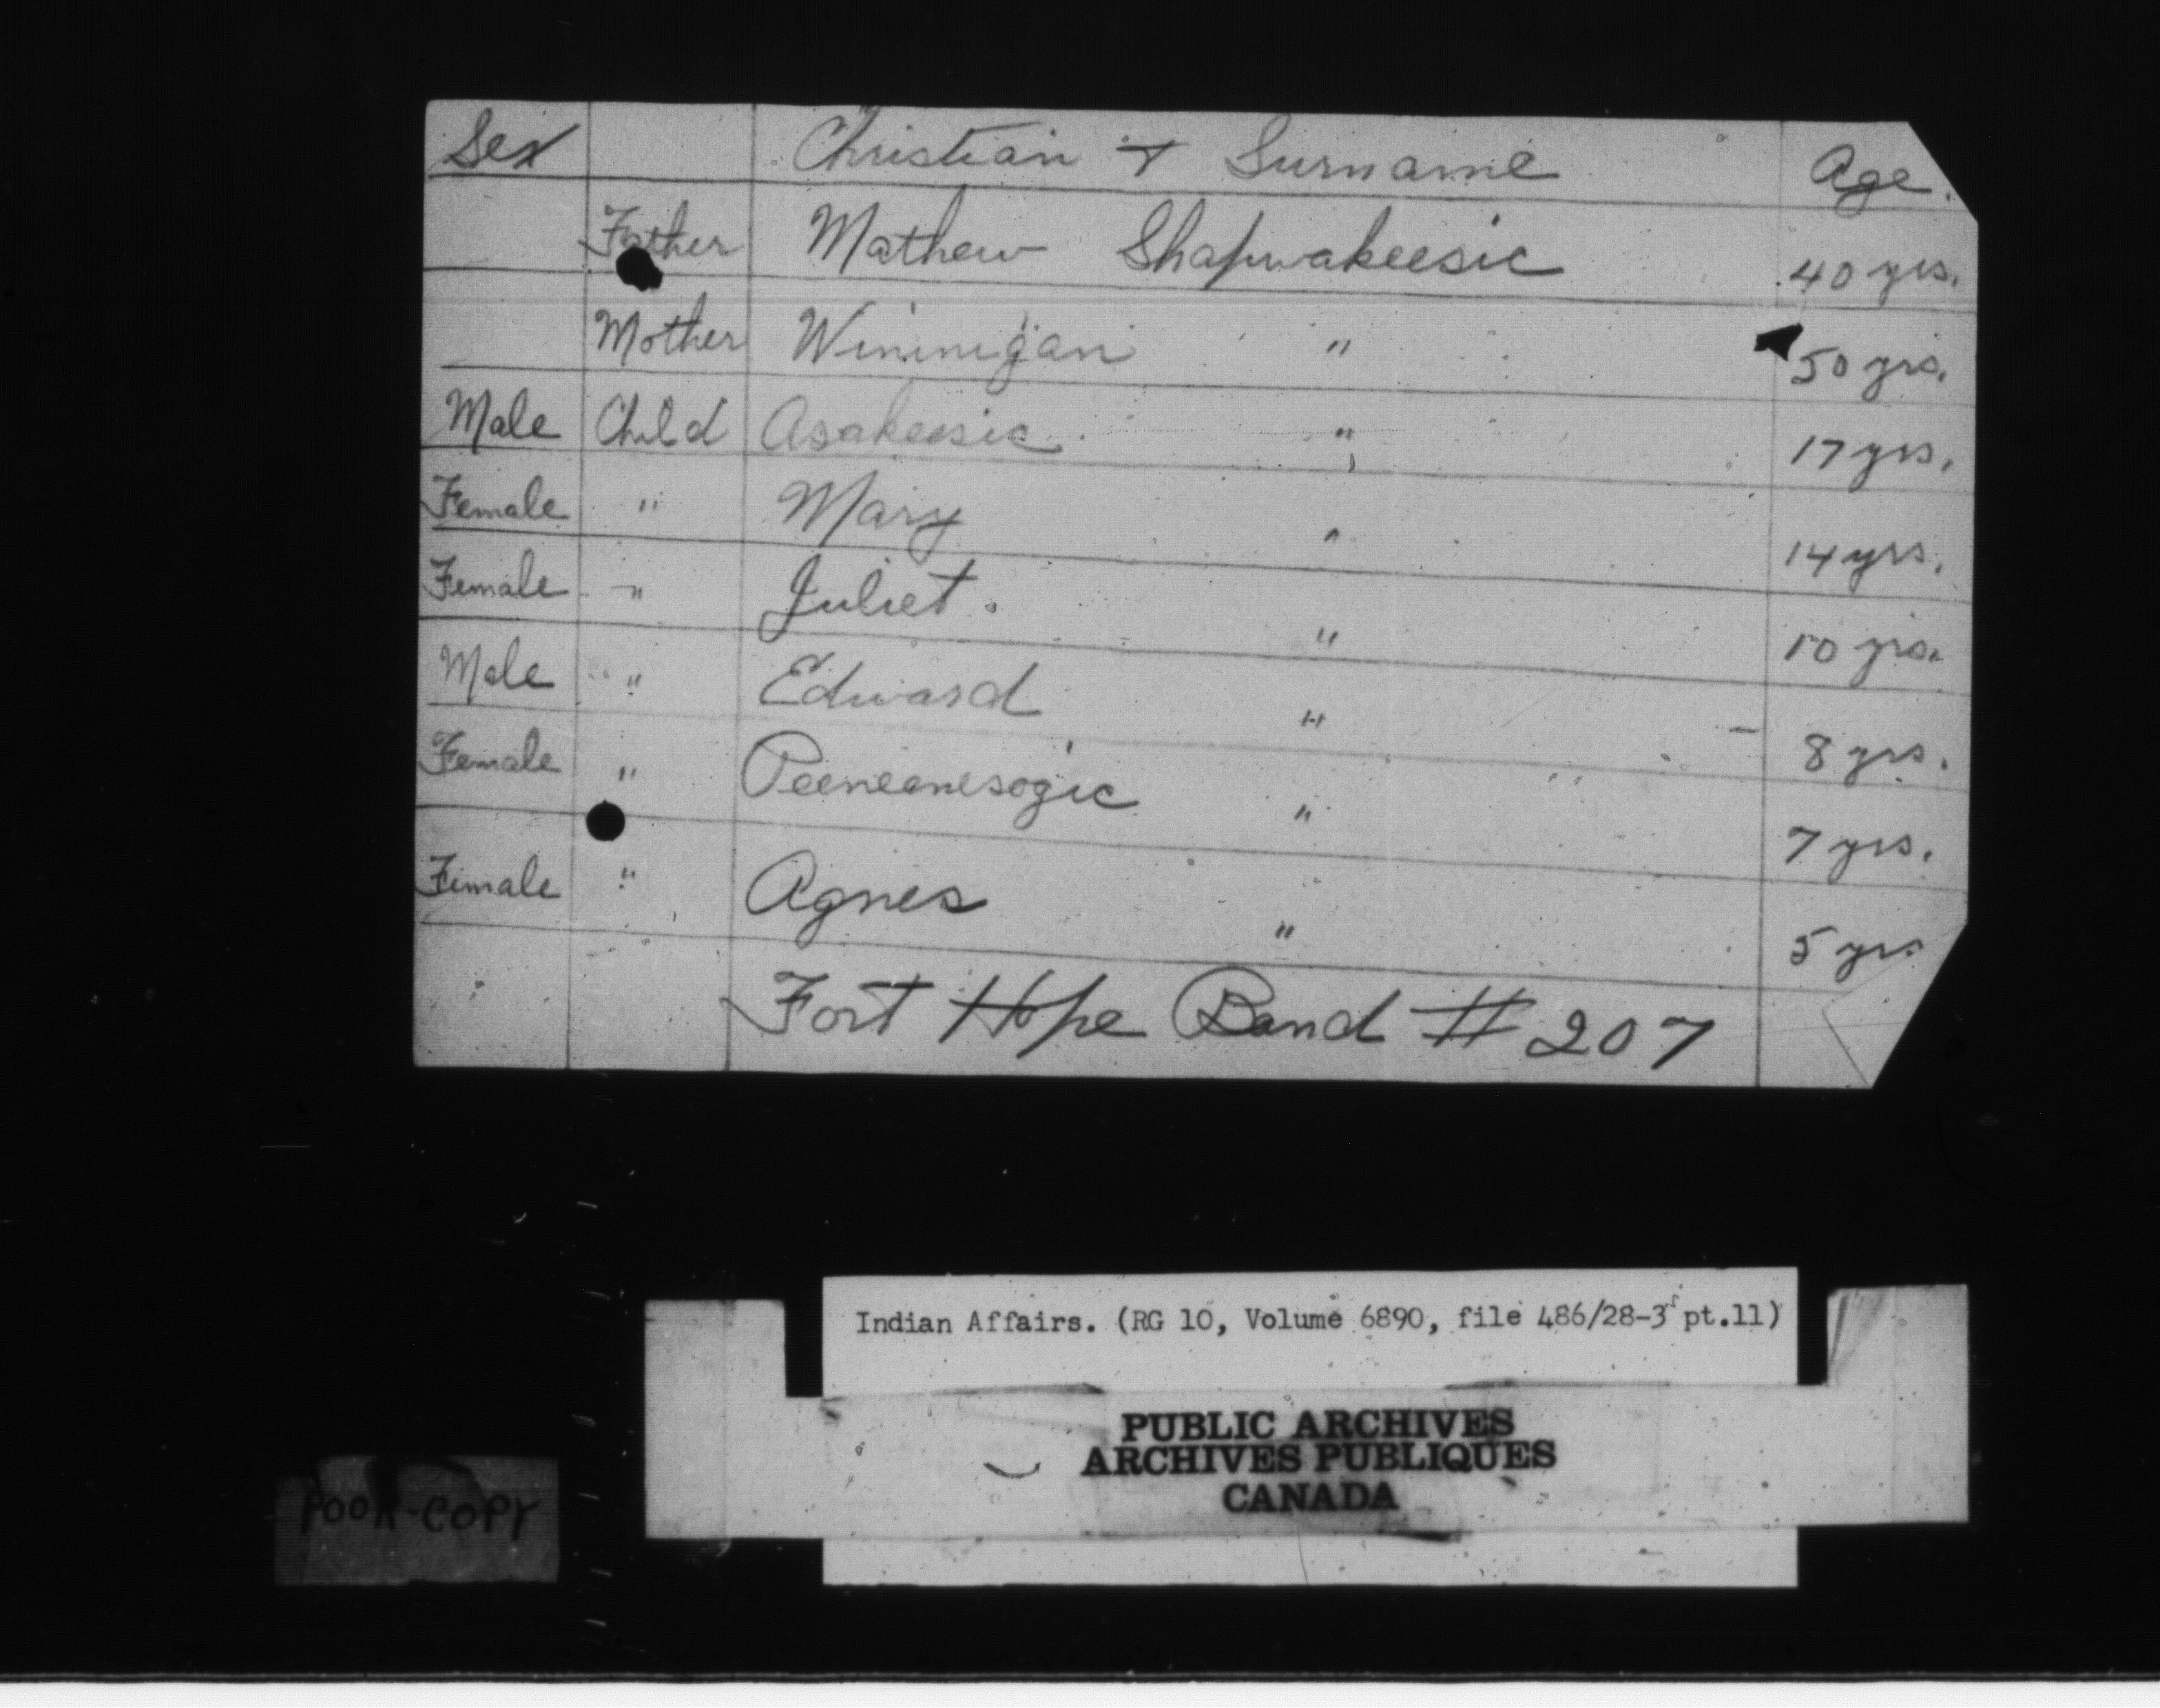 Sex Christian + Surname Age.
Father Mathew Shapwakeesic 40 yrs.
Mother Winnigan " 50 yrs.
Male Child Asakeesic " 17 yrs.
Female " Mary " 14 yrs.
Female " Juliet. " 10 yrs.
Male " Edward " 8 yrs.
Female " Peeneenesogic " 7 yrs.
Fimale " Agnes " 5 yrs
Fort Hope Band # 207
Indian Affairs. (RG 10, Volume 6890, file 486/28-3 pt.11)
PUBLIC ARCHIVES
ARCHIVES PUBLIQUES
CANADA
POOR COPY